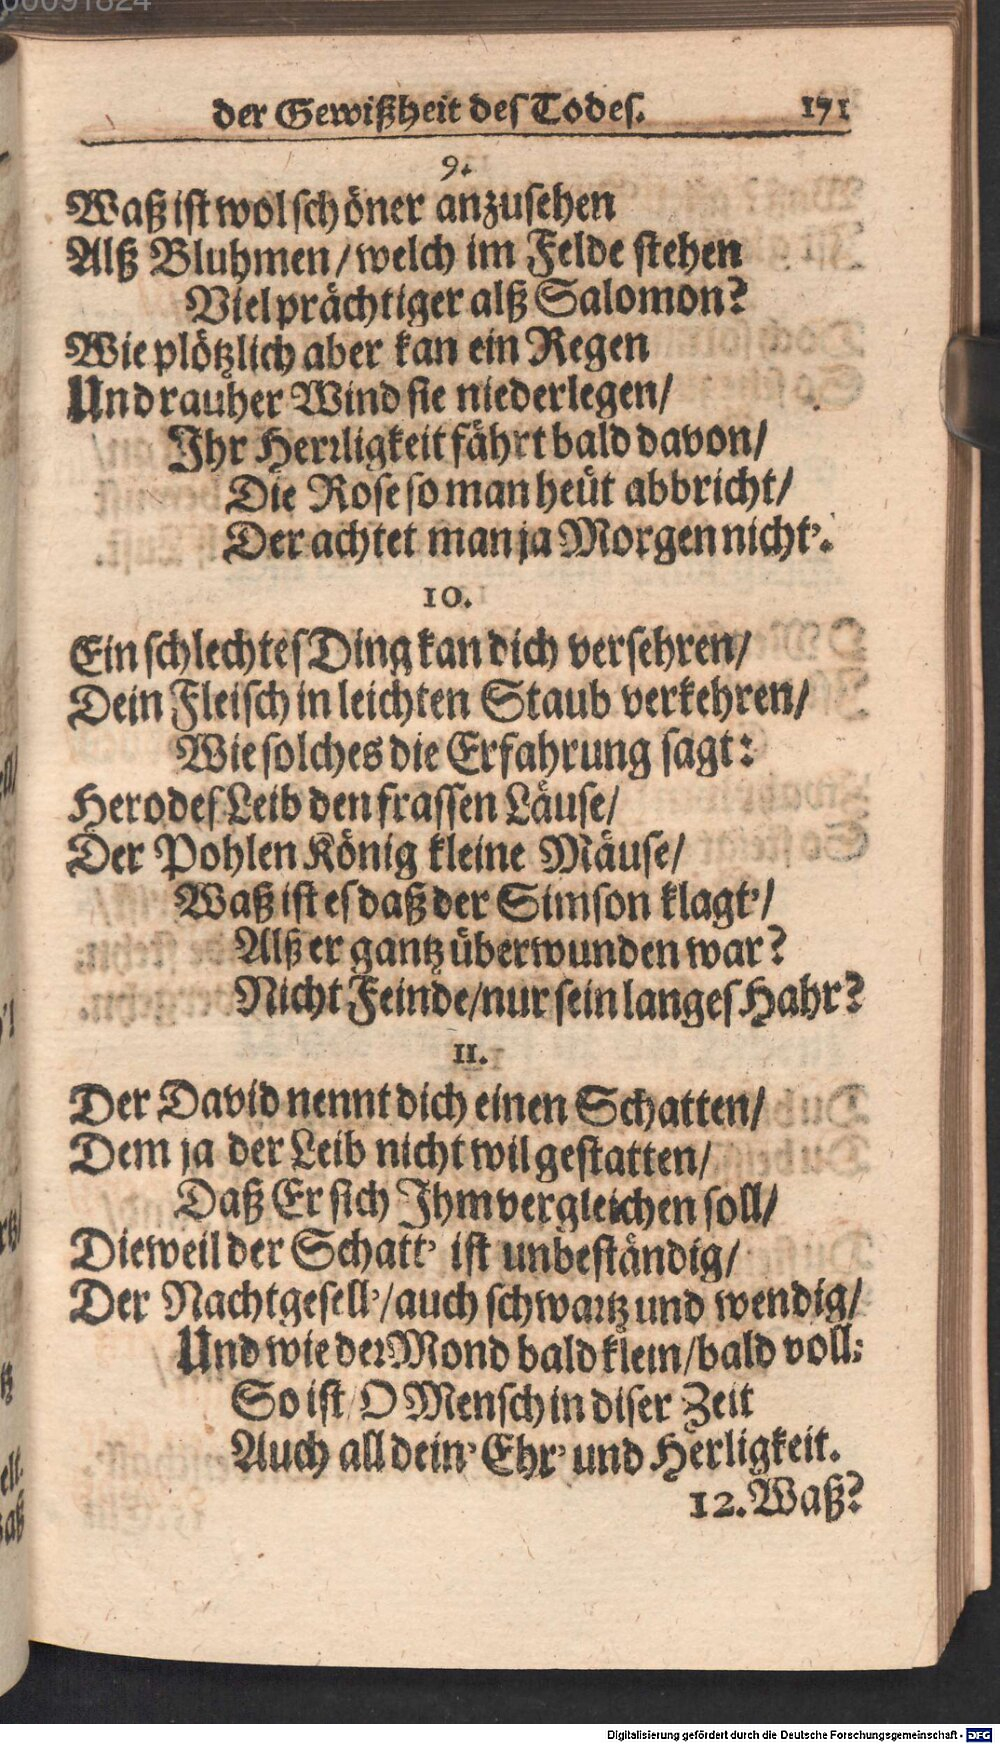 00091824
der Gewißheit des Todes. 171
9.
Waß ist wol schöner anzusehen
Alß Bluhmen/ welch im Felde stehen
Viel prächtiger alß Salomon?
Wie plötzlich aber kan ein Regen
Und rauher Wind sie niederlegen/
Ihr Herrligkeit fährt bald davon/
Die Rose so man heüt abbricht/
Der achtet man ja Morgen nicht'.
10.
Ein schlechtes Ding kan dich versehren/
Dein Fleisch in leichten Staub verkehren/
Wie solches die Erfahrung sagt:
Herodes Leib den frassen Läuse/
Der Pohlen König kleine Mäuse/
Waß ist es daß der Simson klagt'/
Alß er gantz überwunden war?
Nicht Feinde/ nur sein langes Hahr?
11.
Der David nennt dich einen Schatten/
Dem ja der Leib nicht wil gestatten/
Daß Er sich Ihm vergleichen soll/
Dieweil der Schatt' ist unbeständig/
Der Nachtgesell'/ auch schwartz und wendig/
Und wie der Mond bald klein/ bald voll:
So ist/ O Mensch in diser Zeit
Auch all dein' Ehr' und Herligkeit.
12. Waß?
Digitalisierung gefördert durch die Deutsche Forschungsgemeinschaft - DFG